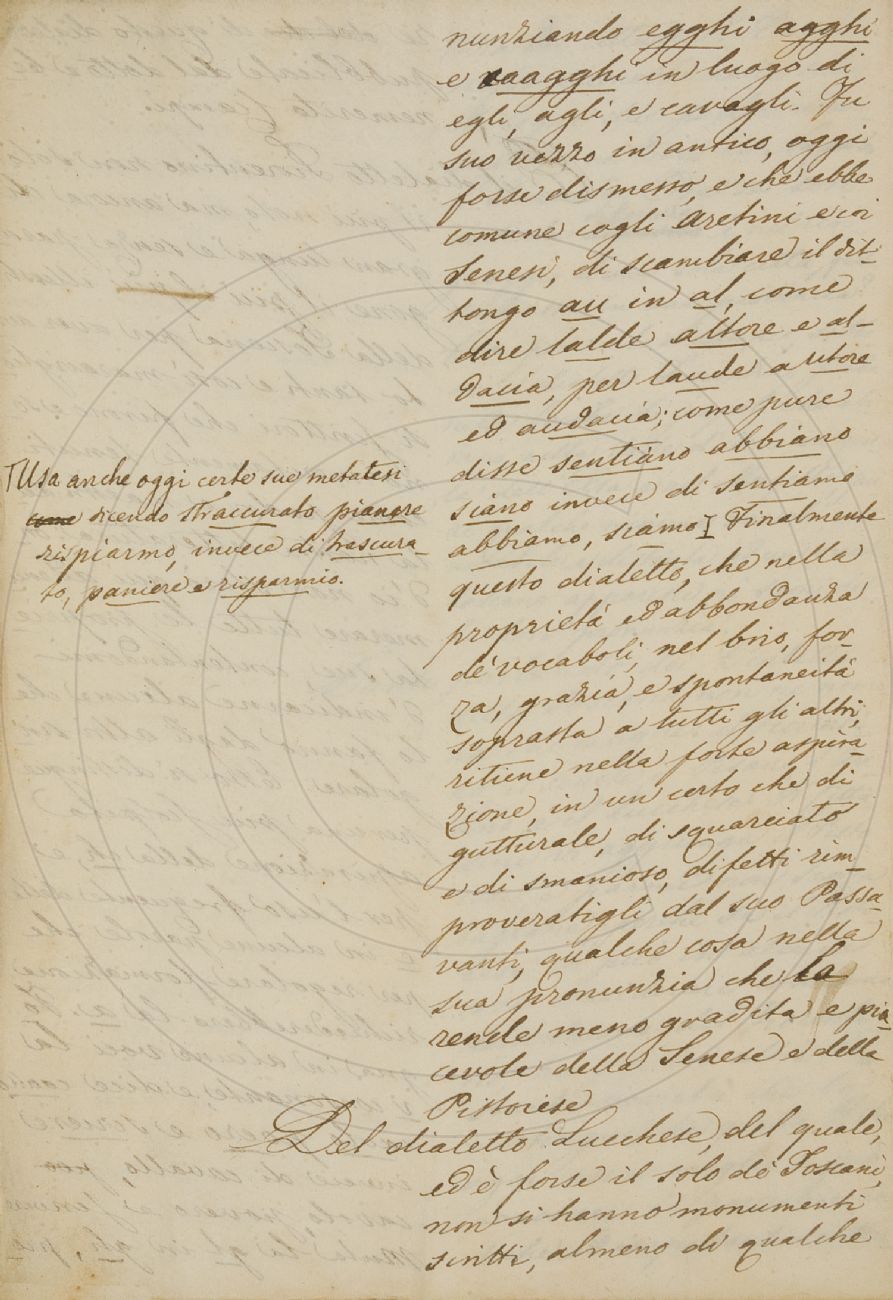 nunziando egghi agghi
e caagghi in luogo di
egli, agli, e cavagli. Fu
suo vezzo in antico, oggi
forse dismesso, e che ebbe
comune cogli Aretini e coi
Senesi, di scambiare il dit-
tongo au in al, come
dire lalde altore e al-
dacia, per laude autore
ed audacia; come pure
disse sentiàno abbiano
siàno invece di sentiame
abbiamo, siàmo Finalmente
questo dialetto, che nella
proprietà ed abbondanza
de' vocaboli, nel brio, for-
za, grazia, e spontaneità
soprasta a tutti gli altri,
ritiene nella forte aspira-
zione, in un certo che di
gutturale, di squarciato
e di smanioso, difetti rim-
proveratigli dal suo Passa-
vanti, qualche cosa nella
sua pronunzia che la
rende meno gradita e pia-
cevole della Senese e della
Pistoiese
Del dialetto Lucchese, del quale,
ed è forse il solo de' Toscani,
non si hanno monumenti
scritti, almeno di qualche
Usa anche oggi certe sue metatesi
come dicendo straccurato pianere
rispiarmo, invece di trascura-
to, paniere e risparmio.